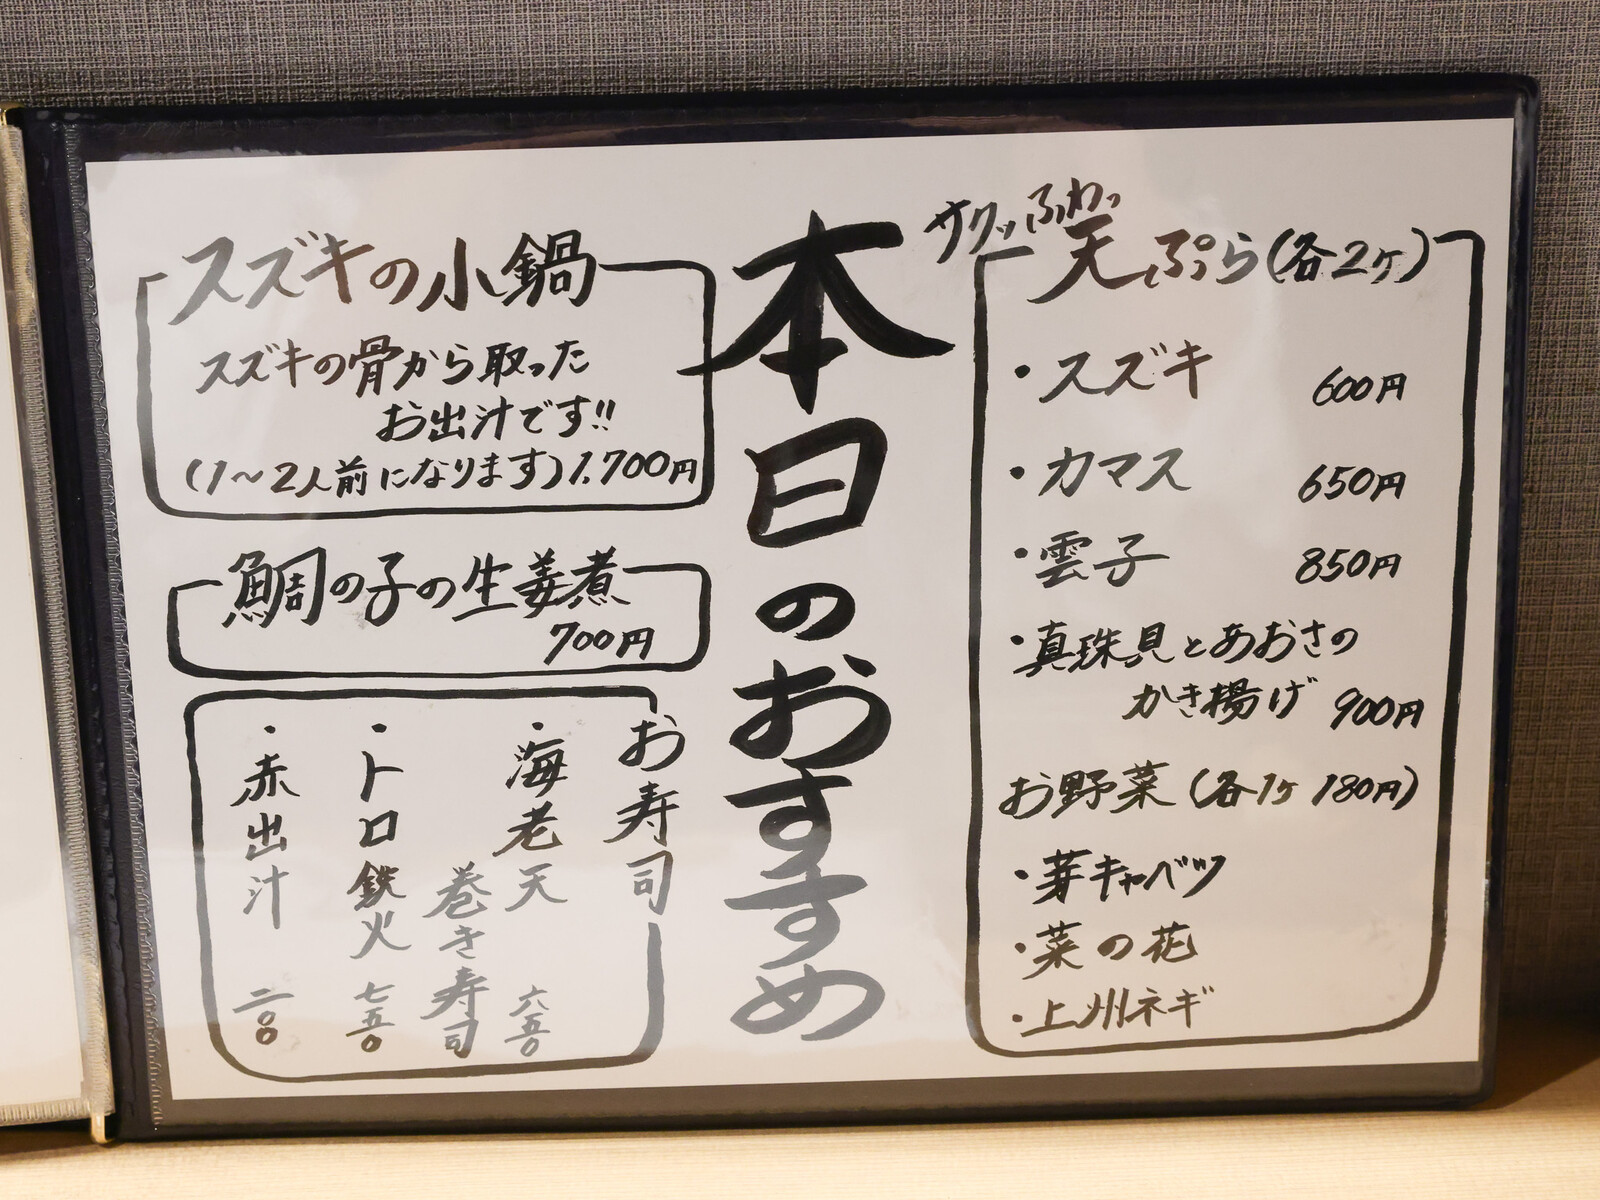 本日のおすすめ
サクッふわっ
天ぷら(各2ヶ)
・スズキ 600円
・カマス 650円
・雲子 850円
・真珠貝とあおさの
かき揚げ 900円
お野菜(各1ヶ 180円)
・芽キャベツ
・菜の花
・上州ネギ
スズキの小鍋
スズキの骨から取った
お出汁です!!
(1〜2人前になります)1.700円
鯛の子の生姜煮
700円
お寿司
・海老天 六五〇
巻き寿司
・トロ鉄火 七五〇
・赤出汁 二〇〇